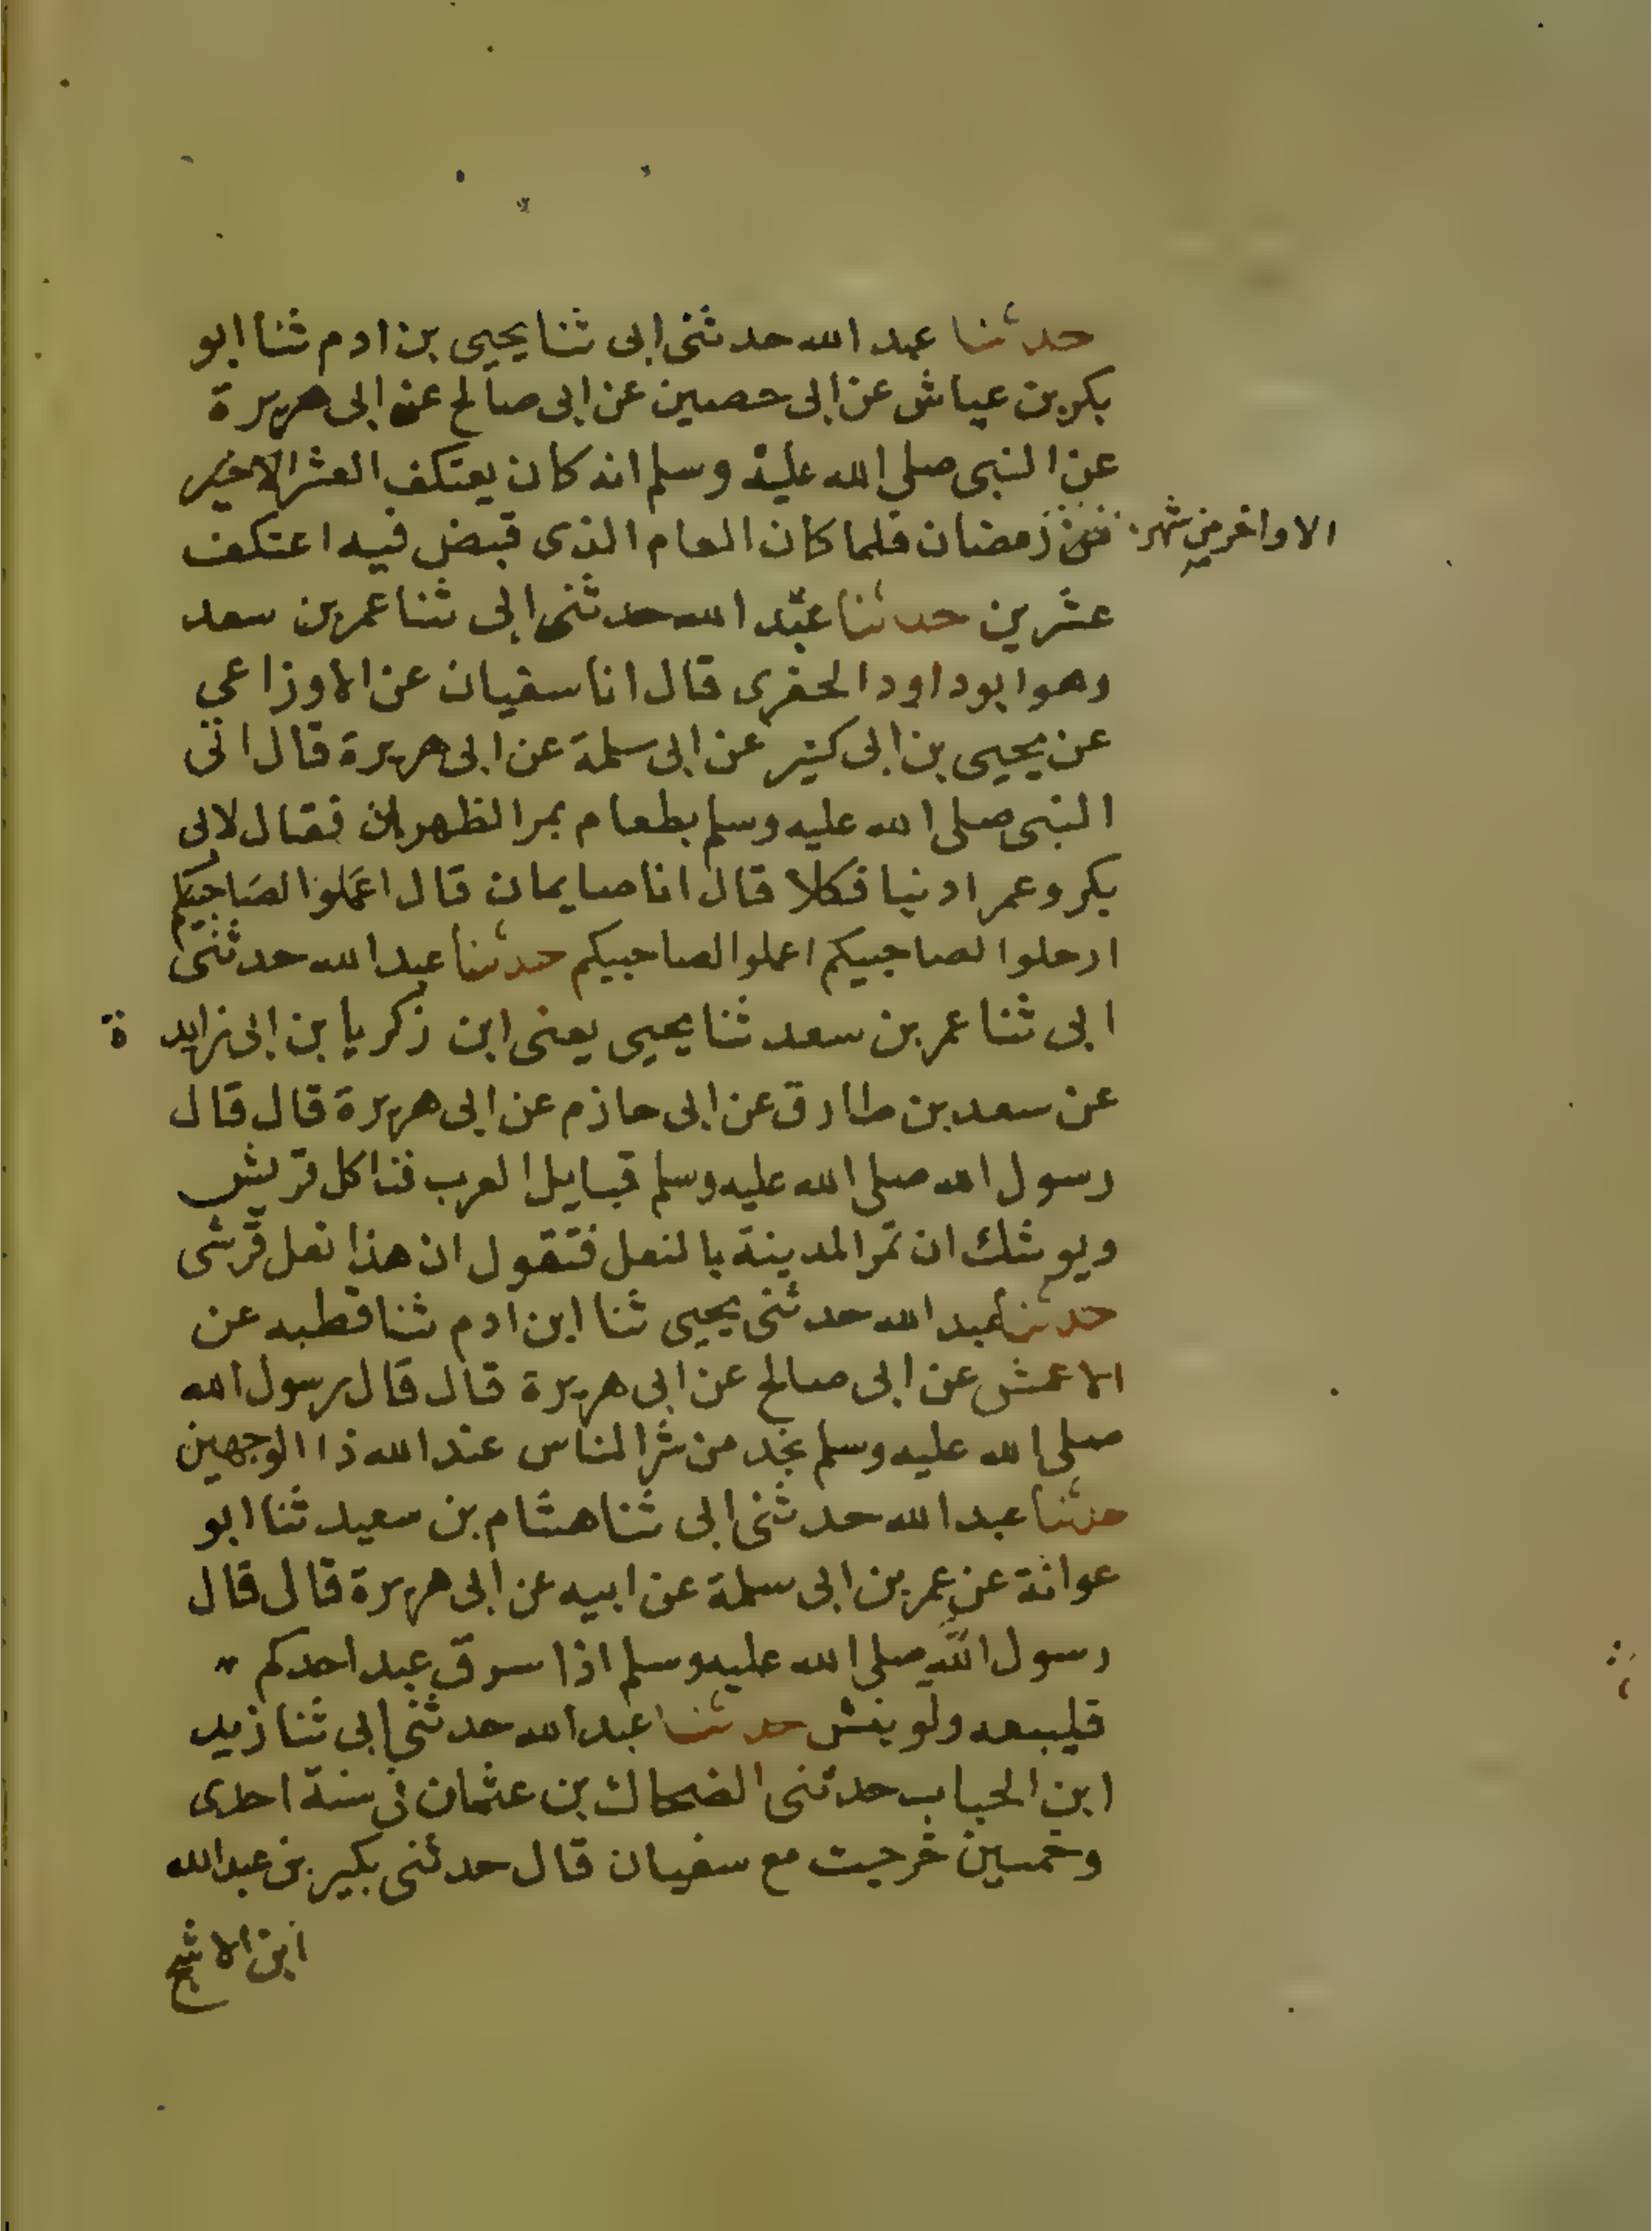 حدثنا عبد الله حدثنى ابى ثنا يحيى بن ادم ثنا ابو
بكر بن عياش عن ابى حصين عن ابى صالح عن ابى هريرة
عن النبى صلى الله عليه وسلم انه كان يعتكف العشر الاخير
الاواخر من شهر
من رمضان فلما كان العام الذى قبض فيه اعتكف
عشرين حدثنا عبد الله حدثنى ابى ثنا عمر بن سعد
وهو ابو داود الحفرى قال انا سفيان عن الاوزاعى
عن يحيى بن ابى كثير عن ابى سلمة عن ابى هريرة قال اتى
النبى صلى الله عليه وسلم بطعام بمر الظهران فقال لابى
بكر وعمر ادنيا فكلا قال انا صايمان قال اعملوا لصاحبيكم
ارحلوا لصاحبيكم اعملوا لصاحبيكم حدثنا عبد الله حدثنى
ابى ثنا عمر بن سعد ثنا يحيى يعنى ابن زكريا بن ابى زايدة
عن سعد بن طارق عن ابى حازم عن ابى هريرة قال قال
رسول الله صلى الله عليه وسلم قبايل العرب فنا كل قريش
ويوشك ان تمر المدينة بالنعل فتقول ان هذا نعل قرشى
حدثنا عبد الله حدثنى يحيى ثنا ابن ادم ثنا قطبه عن
الاعمش عن ابى صالح عن ابى هريرة قال قال رسول الله
صلى الله عليه وسلم تجد من شر الناس عند الله ذا الوجهين
حدثنا عبد الله حدثنى ابى ثنا هشام بن سعيد ثنا ابو
عوانة عن عمر بن ابى سلمة عن ابيه عن ابى هريرة قال قال
رسول الله صلى الله عليه وسلم اذا سرق عبد احدكم
فليبعه ولو بنش حدثنا عبد الله حدثنى ابى ثنا زيد
ابن الحباب حدثنى الضحاك بن عثمان فى سنة احدى
وخمسين خرجت مع سفيان قال حدثنى بكير بن عبد الله
ابن الاشج